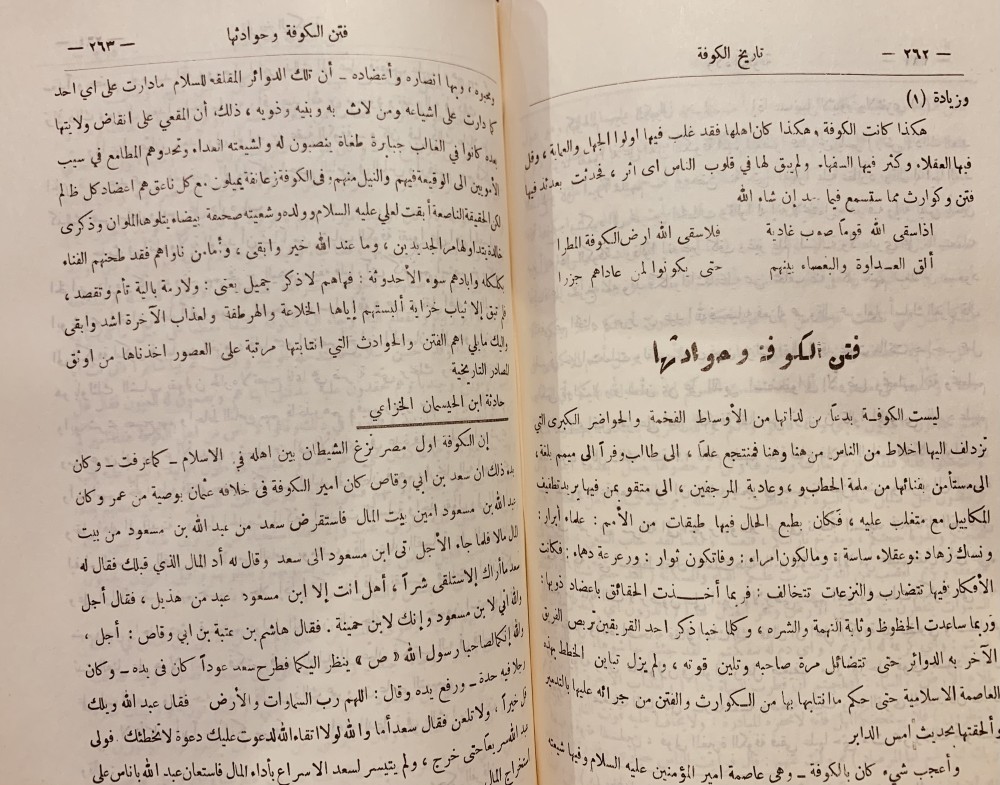 — ٢٦٢ —
تاريخ الكوفة
وزيادة (١)
هكذا كانت الكوفة وهكذا كان اهلها فقد غلب فيها اولوا الجهل والعماية ، وقل
فيها العقلاء وكثر فيها السفهاء ولم يبق لها في قلوب الناس اي اثر ، فحدثت بعدئذ فيها
فتن وكوارث مما ستسمع فيما بعد إن شاء الله
اذا سقى الله قوماً صوب غادية فلا سقى الله ارض الكوفة المطرا
ألق العداوة والبغضاء بينهم حتى يكونوا لمن عاداهم جزرا
فتن الكوفة وحوادثها
ليست الكوفة بدعاً من لداتها من الأوساط الفخمة والحواضر الكبرى التي
تزدلف اليها اخلاط من الناس من هنا وهنا فمنتجع علماً ، الى طالب وفراً الى ميمم بلغة،
الى مستأمن بفنائها من ملمة الخطوب ، وعادية المرجفين ، الى متقو بمن فيها يريد تطفيف
المكاييل مع متغلب عليه ، فكان بطبع الحال فيها طبقات من الأمم : علماء أبرار :
ونساك زهاد : وعقلاء ساسة : ومالكون امراء : وفاتكون ثوار : ورعرعة دهماء : فكانت
الأفكار فيها تتضارب والنزعات تتخالف : فربما أخذت الحقائق باعضاد ذويها :
وربما ساعدت الحظوظ وثابة النهمة والشره ، وكلما خبا ذكر احد الفريقين تربص الفريق
الآخر به الدوائر حتى تتضائل مرة صاحبه وتلين قوته ، ولم يزل تباين الخطط بهذه
العاصمة الاسلامية حتى حكم ما انتابها بها من الكوارث والفتن من جرائه عليها بالتدمير
وألحقتها بحديث أمس الدابر
وأعجب شيء كان بالكوفة — وهي عاصمة امير المؤمنين عليه السلام وفيها شيعته
فتن الكوفة وحوادثها
— ٢٦٣ —
ومحبوه ، وبها انصاره وأعضاده — أن تلك الدوائر المقلقة للسلام مادارت على اي احد
كما دارت على اشياعه ومن لاث به وبنيه وذويه ، ذلك ، أن المقعي على انقاض ولايتها
بعده كانوا في الغالب جبابرة طغاة ينصبون له ولشيعته العداء وتحدوهم المطامع في سيب
الأمويين الى الوقيعة فيهم والنيل منهم : وفي الكوفة زعانفة يميلون مع كل ناعق هم اعضاد كل ظالم
لكن الحقيقة الناصعة أبقت لعلي عليه السلام وولده وشيعته صحيفة بيضاء يتلوها الملوان وذكرى
خالدة يتداولها مر الجديدين ، وما عند الله خير وابقى ، وأما من ناواهم فقد طحنهم الفناء
بكلكله وابادهم سوء الأحدوثة : فهاهم لا ذكر جميل يعنى : ولا رمة بالية تأم وتقصد ،
فلم تبق إلا ثياب خزاية ألبستهم إياها الخلاعة والهرطقة ولعذاب الآخرة اشد وابقى
واليك مايلي اهم الفتن والحوادث التي انتابتها مرتبة على العصور اخذناها من اوثق
المصادر التاريخية
حادثة ابن الحيسمان الخزاعي
إن الكوفة اول مصر نزغ الشيطان بين اهله في الاسلام — كما عرفت — وكان
بدء ذلك ان سعد بن ابي وقاص كان امير الكوفة في خلافة عثمان بوصية من عمر وكان
عبد الله بن مسعود امين بيت المال فاستقرض سعد من عبد الله بن مسعود من بيت
المال مالا فلما جاء الأجل اتى ابن مسعود الى سعد وقال له أد المال الذي قبلك فقال له
سعد ما أراك إلا ستلقى شراً ، أهل انت إلا ابن مسعود عبد من هذيل ، فقال أجل
والله اني لابن مسعود وإنك لابن حمينة . فقال هاشم بن عتبة بن ابي وقاص : أجل ،
والله إنكما لصاحبا رسول الله « ص » ينظر اليكما فطرح سعد عوداً كان في يده — وكان
رجلا فيه حدة — ورفع يده وقال : اللهم رب السماوات والأرض فقال عبد الله ويلك
قل خيراً ، ولا تلعن فقال سعد أما والله لولا اتقاء الله لدعوت عليك دعوة لا تخطئك فولى
عبد الله سريعاً حتى خرج ، ولم يتيسر لسعد الاسراع بأداء المال فاستعان عبد الله باناس على
استخراج المال